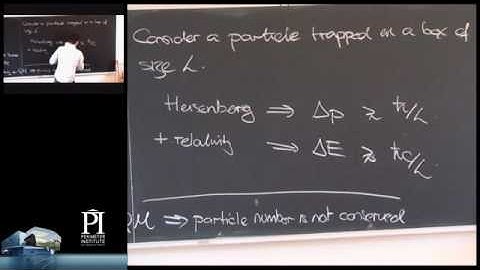 Consider a particle trapped in a box of
size L.
Heisenberg ⇒ Δp ≳ ħ/L
+ relativity ⇒ ΔE ≳ ħc/L.
QM ⇒ particle number is not conserved
PI
PERIMETER
INSTITUTE